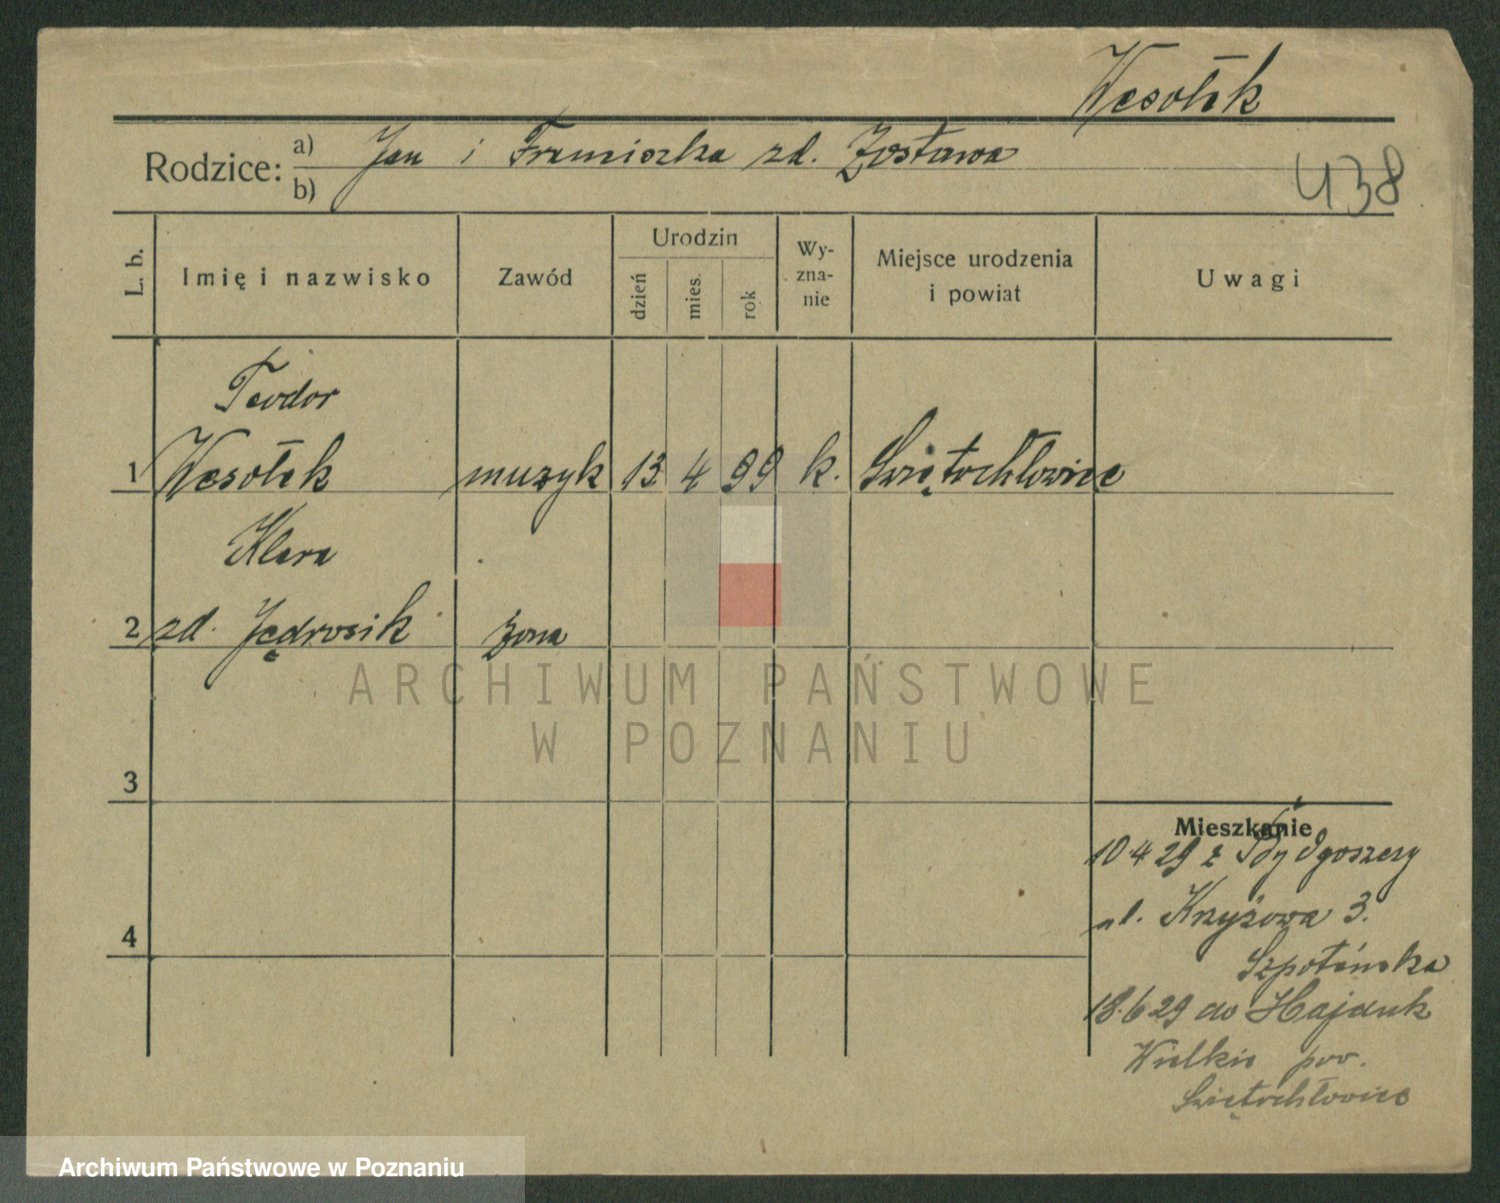 Wesołek
Rodzice: a) Jan i Franciszka zd. Zostawa
b)
438
L. b.
Imię i nazwisko
Zawód
Urodzin
dzień
mies.
rok
Wy-
zna-
nie
Miejsce urodzenia
i powiat
Uwagi
Teodor
1 Wesołek muzyk 13 4 99 k. Świętochłowice
Klara
2 zd. Jędrosik żona
ARCHIWUM PAŃSTWOWE
W POZNANIU
3
4
Mieszkanie
10 4 29 z Bydgoszczy
ul. Krzyżowa 3.
18.6 29 do Hajduk
Wielkie pow.
Świętochłowice
Archiwum Państwowe w Poznaniu